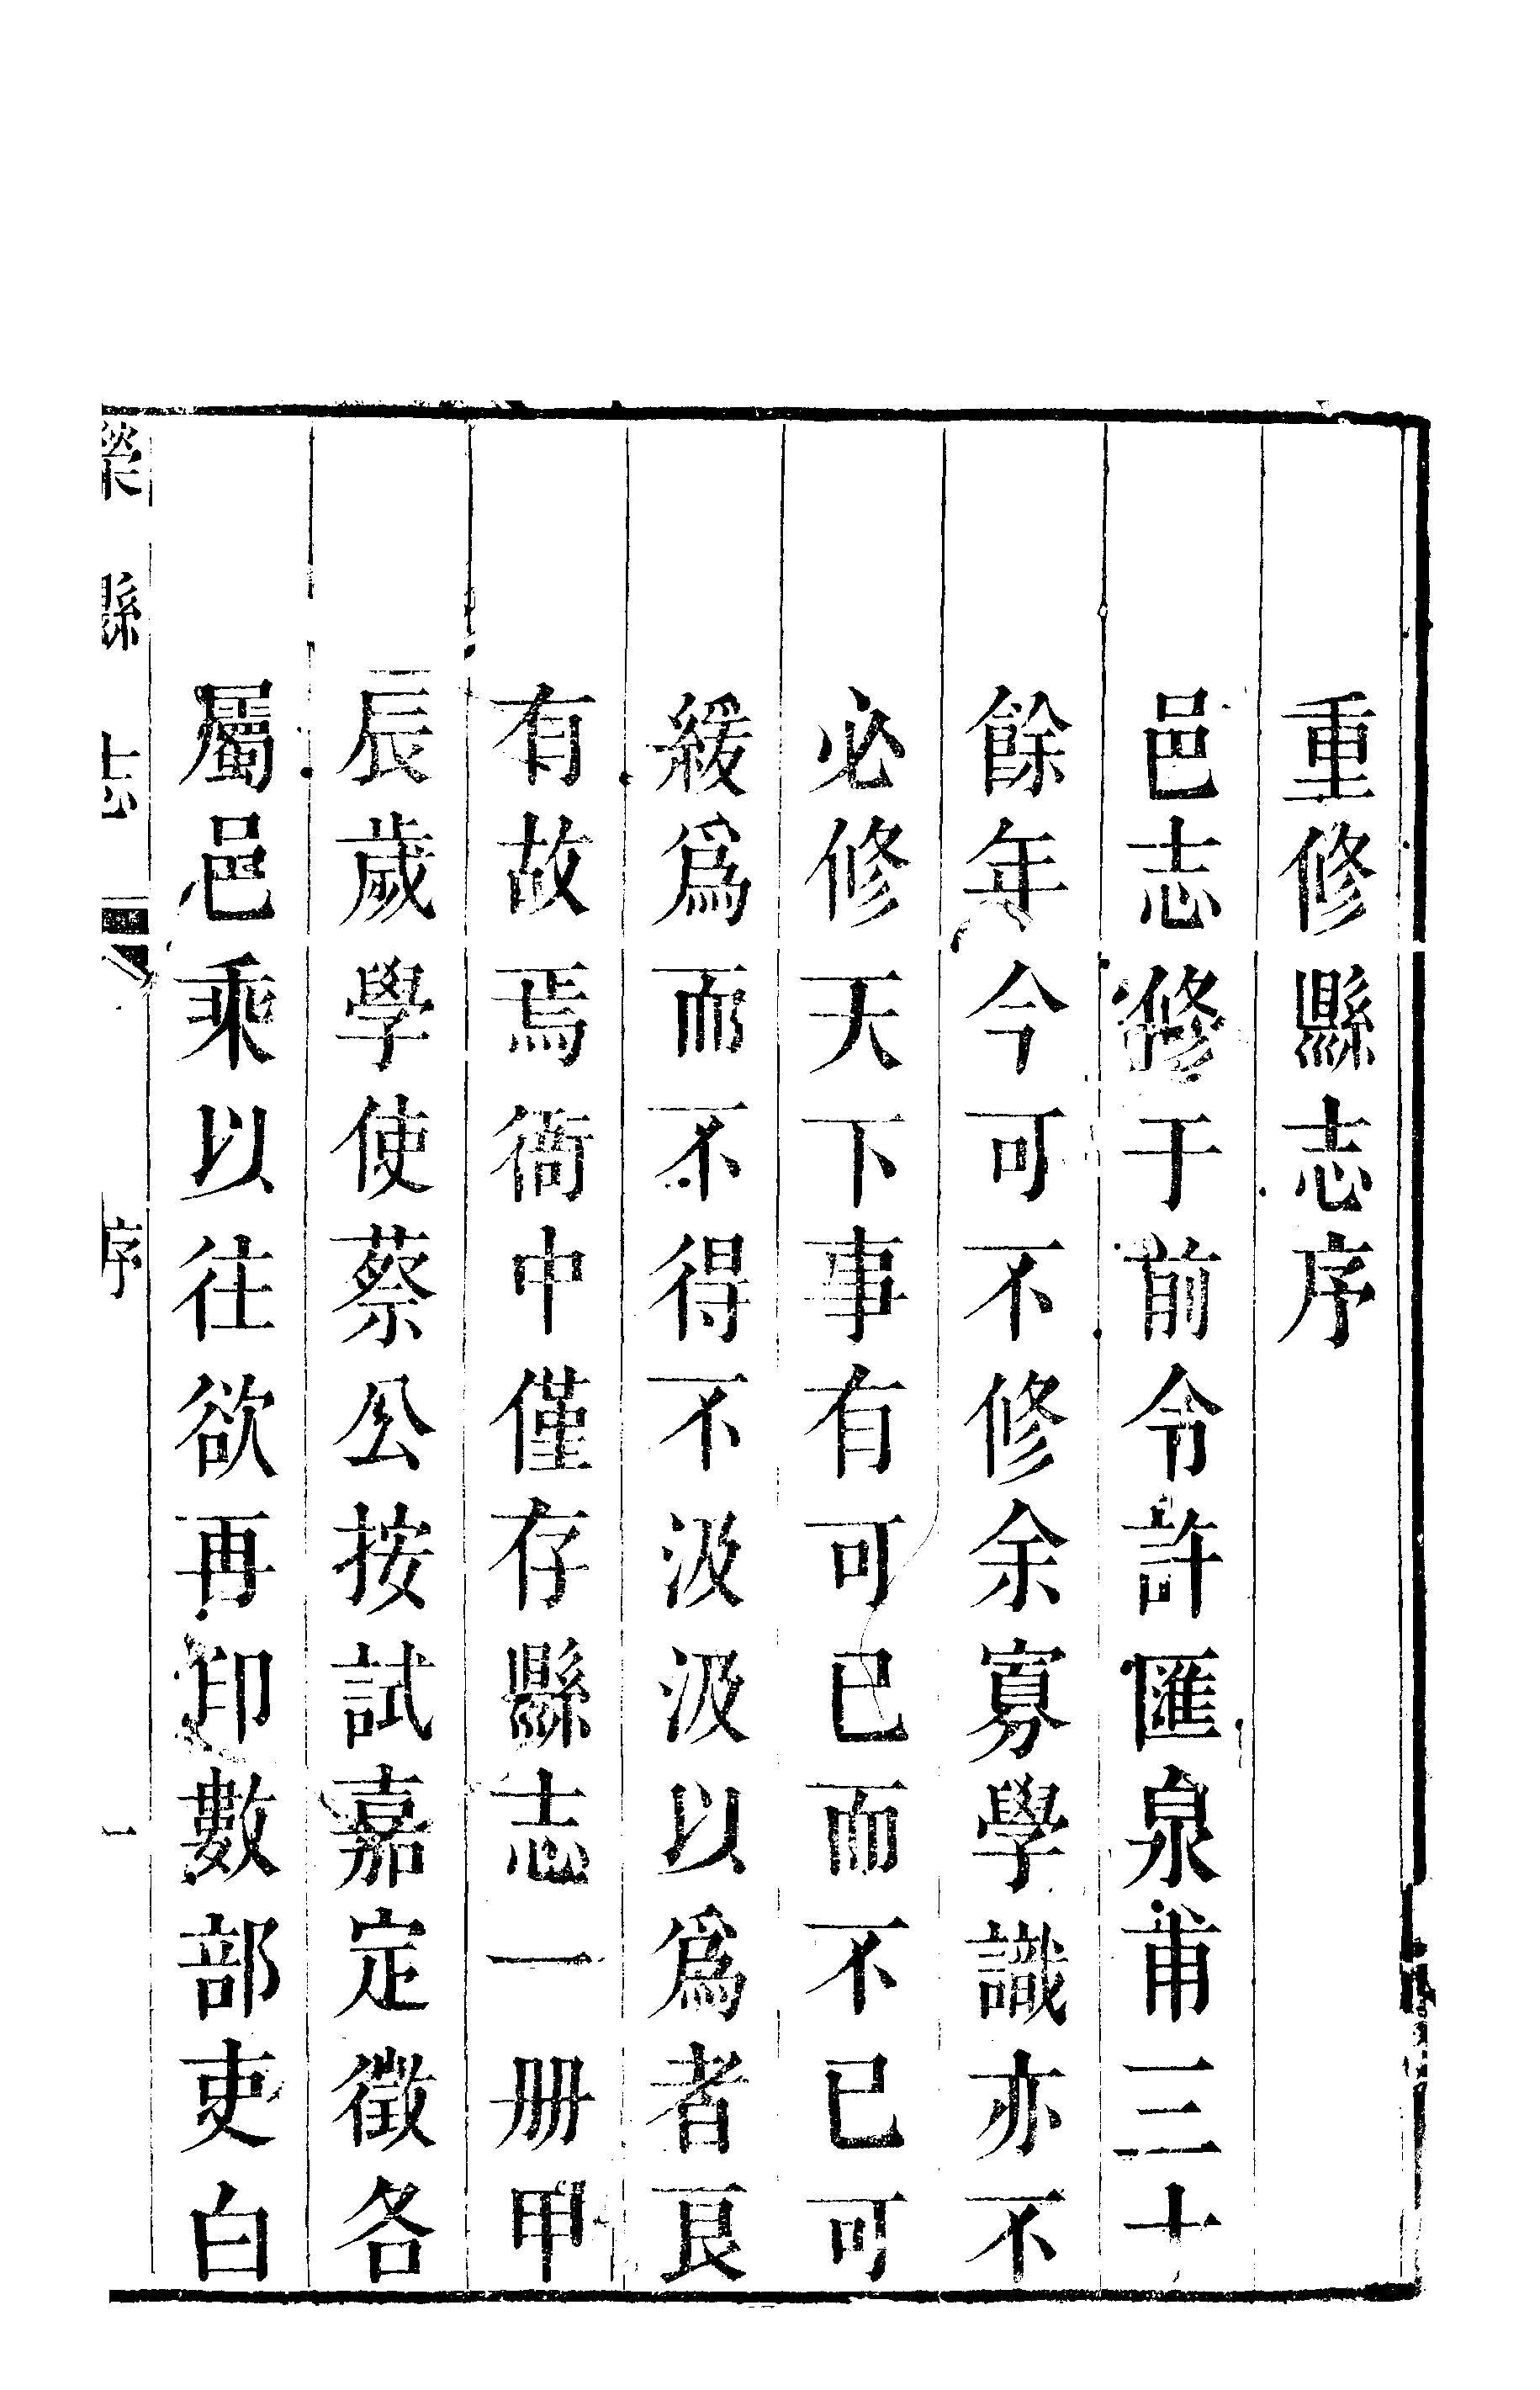 重修縣志序
邑志修于前令許匯泉甫三十
餘年今可不修余寡學識亦不
必修天下事有可已而不已可
緩爲而不得不汲汲以爲者良
有故焉衙中僅存縣志一册甲
辰歲學使蔡公按試嘉定徵各
屬邑乘以往欲再印數部吏白
榮縣志 序 一